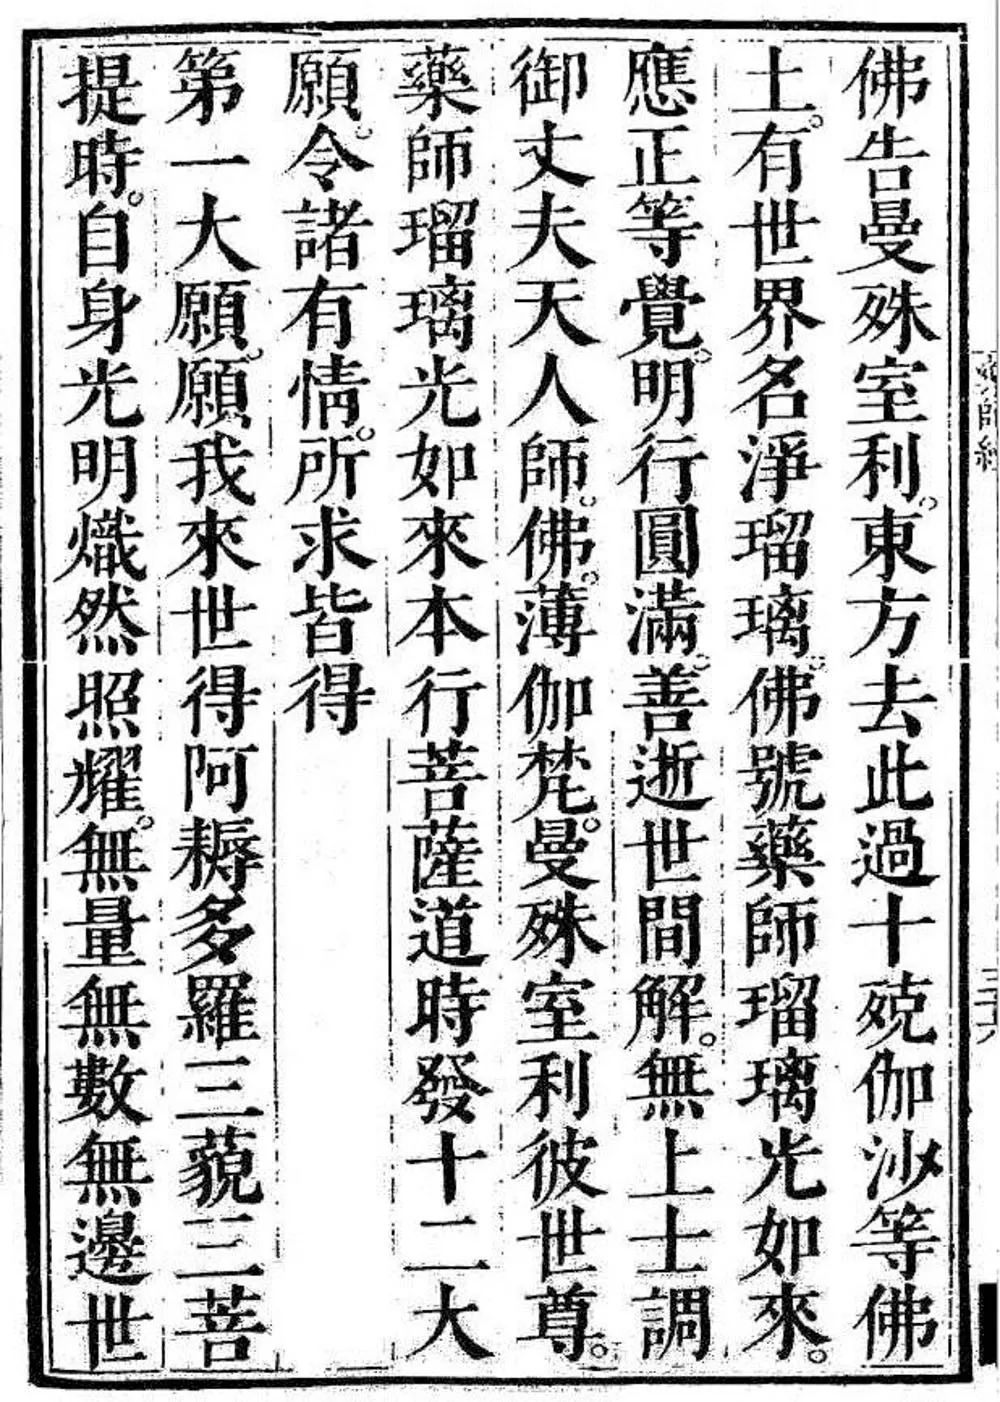 佛告曼殊室利。東方去此過十殑伽沙等佛
土。有世界名淨瑠璃。佛號藥師瑠璃光如來。
應正等覺。明行圓滿。善逝世間解。無上士調
御丈夫天人師。佛。薄伽梵。曼殊室利彼世尊。
藥師瑠璃光如來本行菩薩道時發十二大
願。令諸有情。所求皆得
第一大願。願我來世得阿耨多羅三藐三菩
提時。自身光明熾然照耀。無量無數無邊世